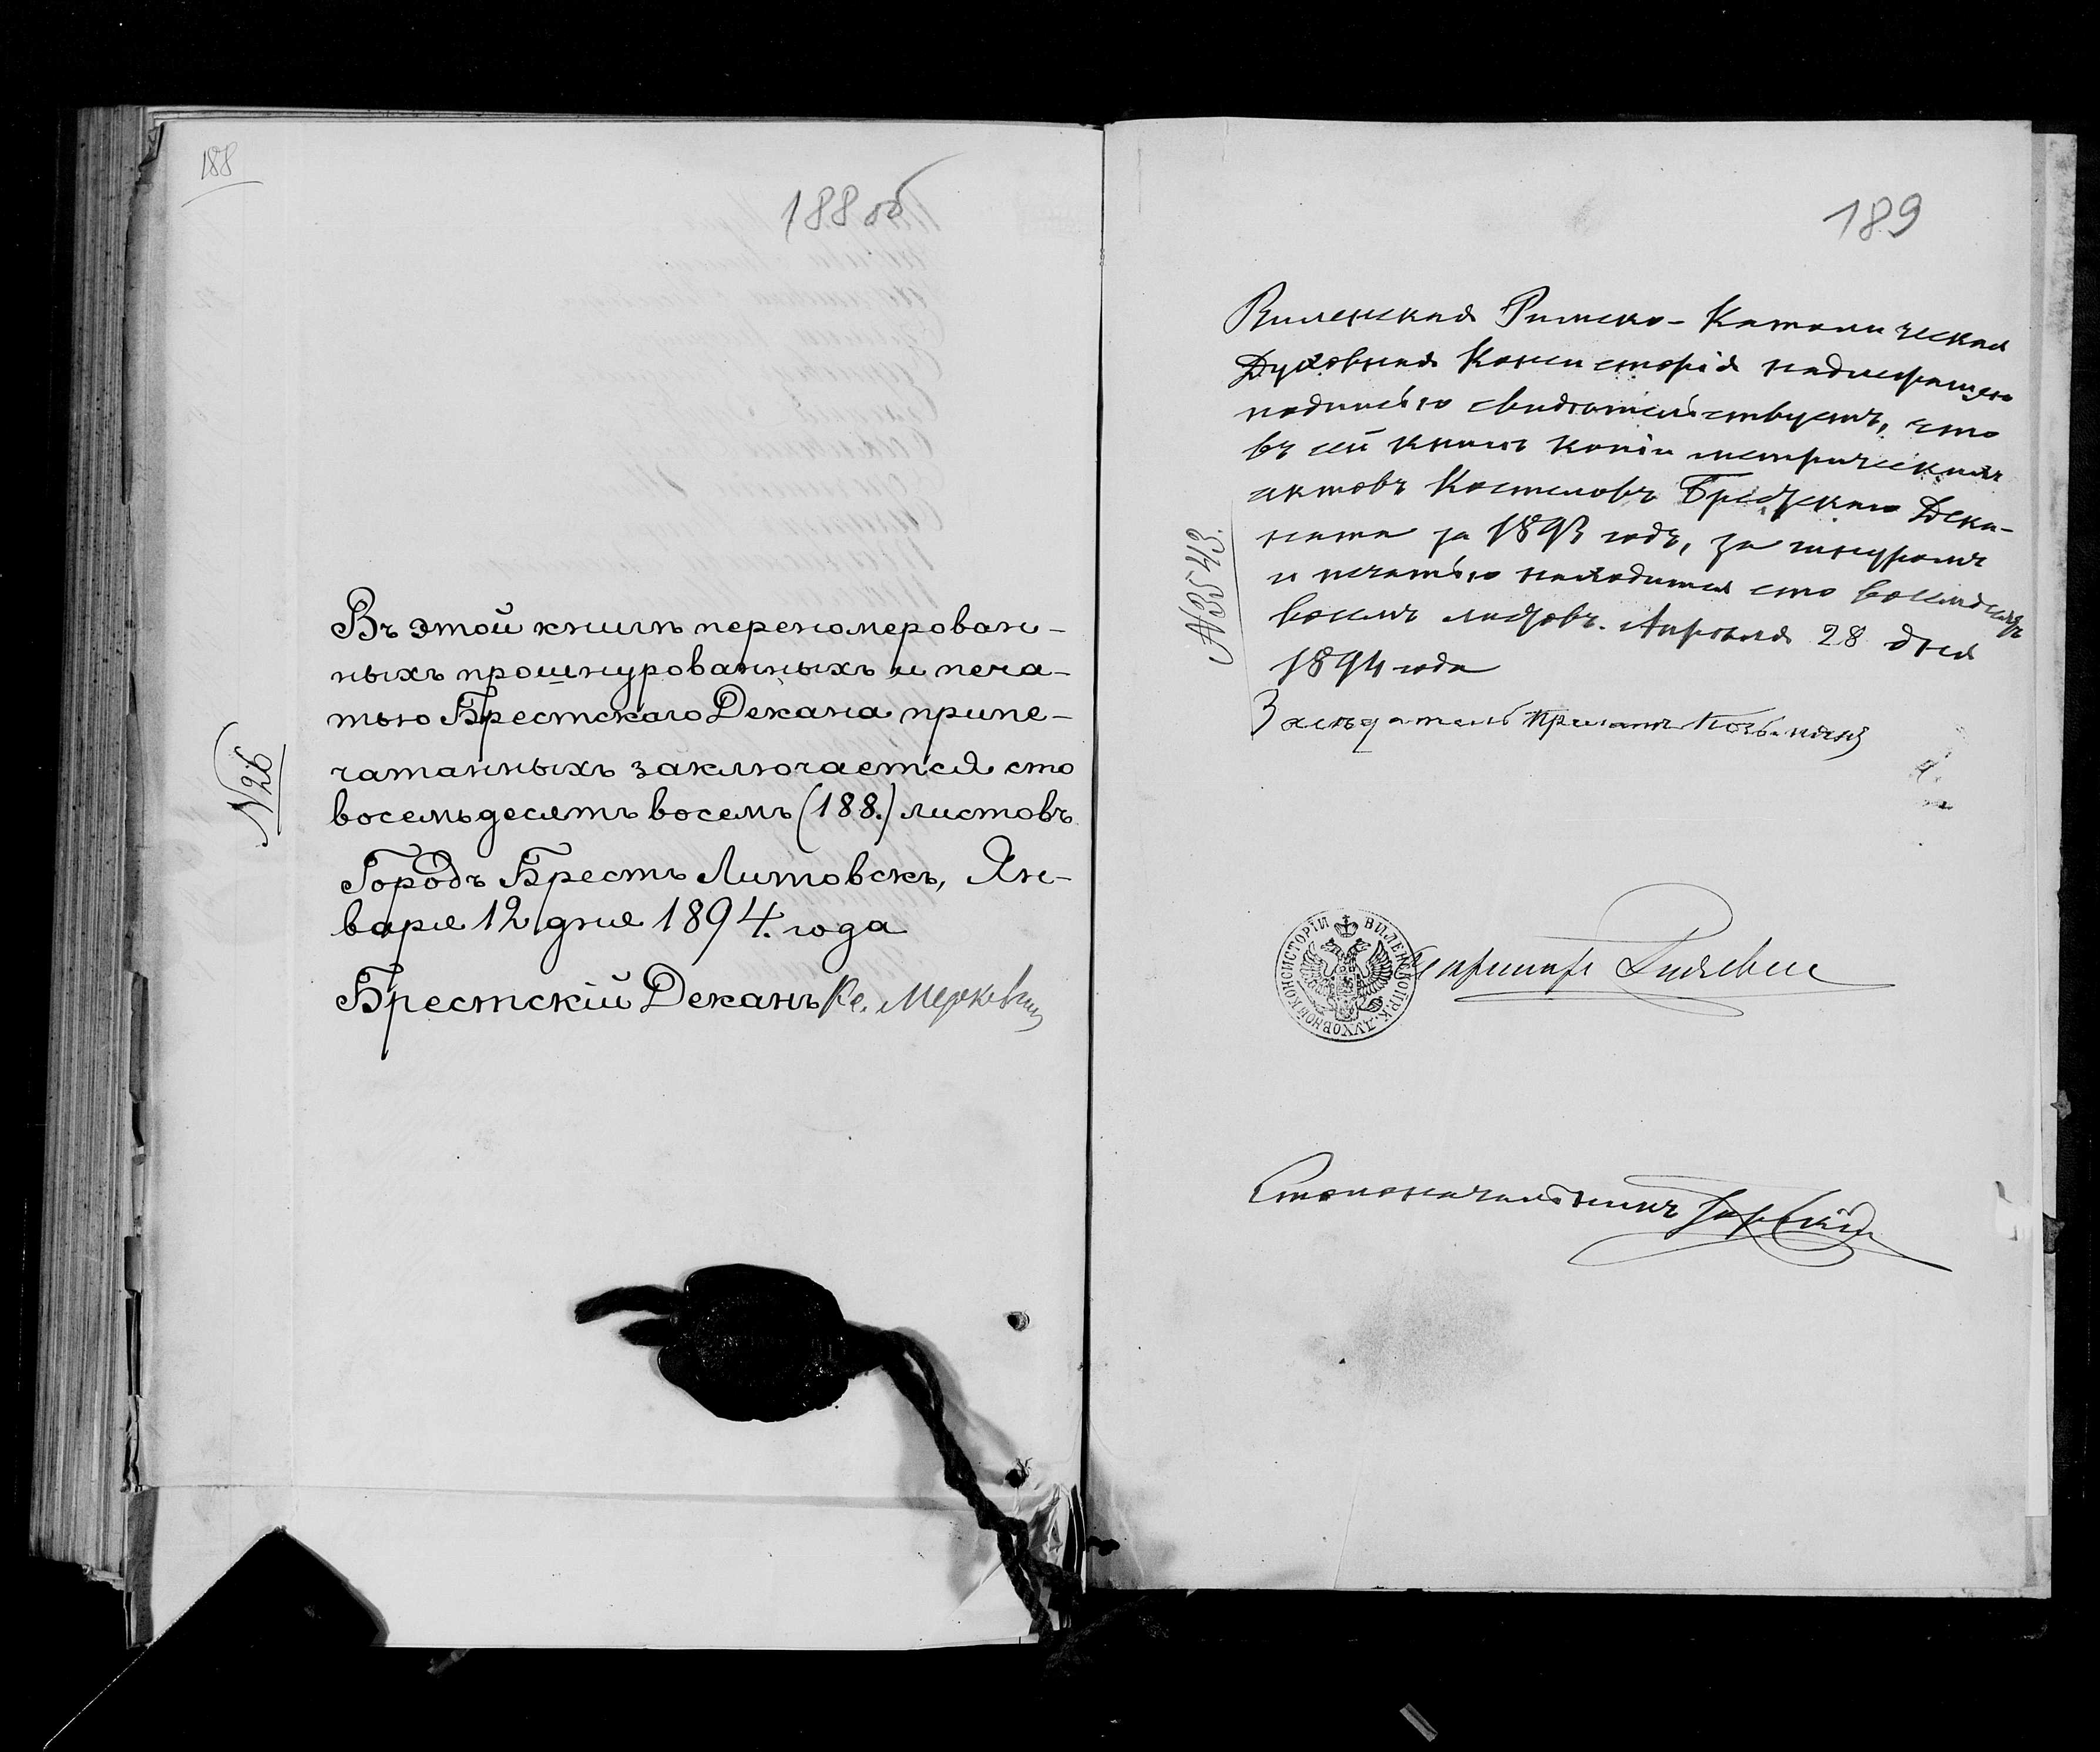 188
188 об
№ 26
Въ этой книгѣ переномерован-
ныхъ прошнурованныхъ и печа-
тью Брестскаго Декана припе-
чатанныхъ заключается сто
восемьдесятъ восемъ (188.) листовъ
Городъ Брестъ Литовскъ, Ян-
варя 12 дня 1894. года
Брестскій Деканъ Кс. Мерк
189
№ 3543.
Виленская Римско-Католическая
Духовная Консисторія надлежащею
подписью свидѣтельствуетъ, что
въ сей книгѣ копіи метрическихъ
актовъ Костеловъ Брестскаго Дека-
ната за 1893 годъ, за шнуромъ
и печатью находится сто восемьдесятъ
восемь листовъ. Апрѣля 28 дня
1894 года
Засѣдатель Прелатъ
ВИЛЕНСКОЙ Р. К. ДУХОВНОЙ КОНСИСТОРІИ
Секретарь
Столоначальникъ